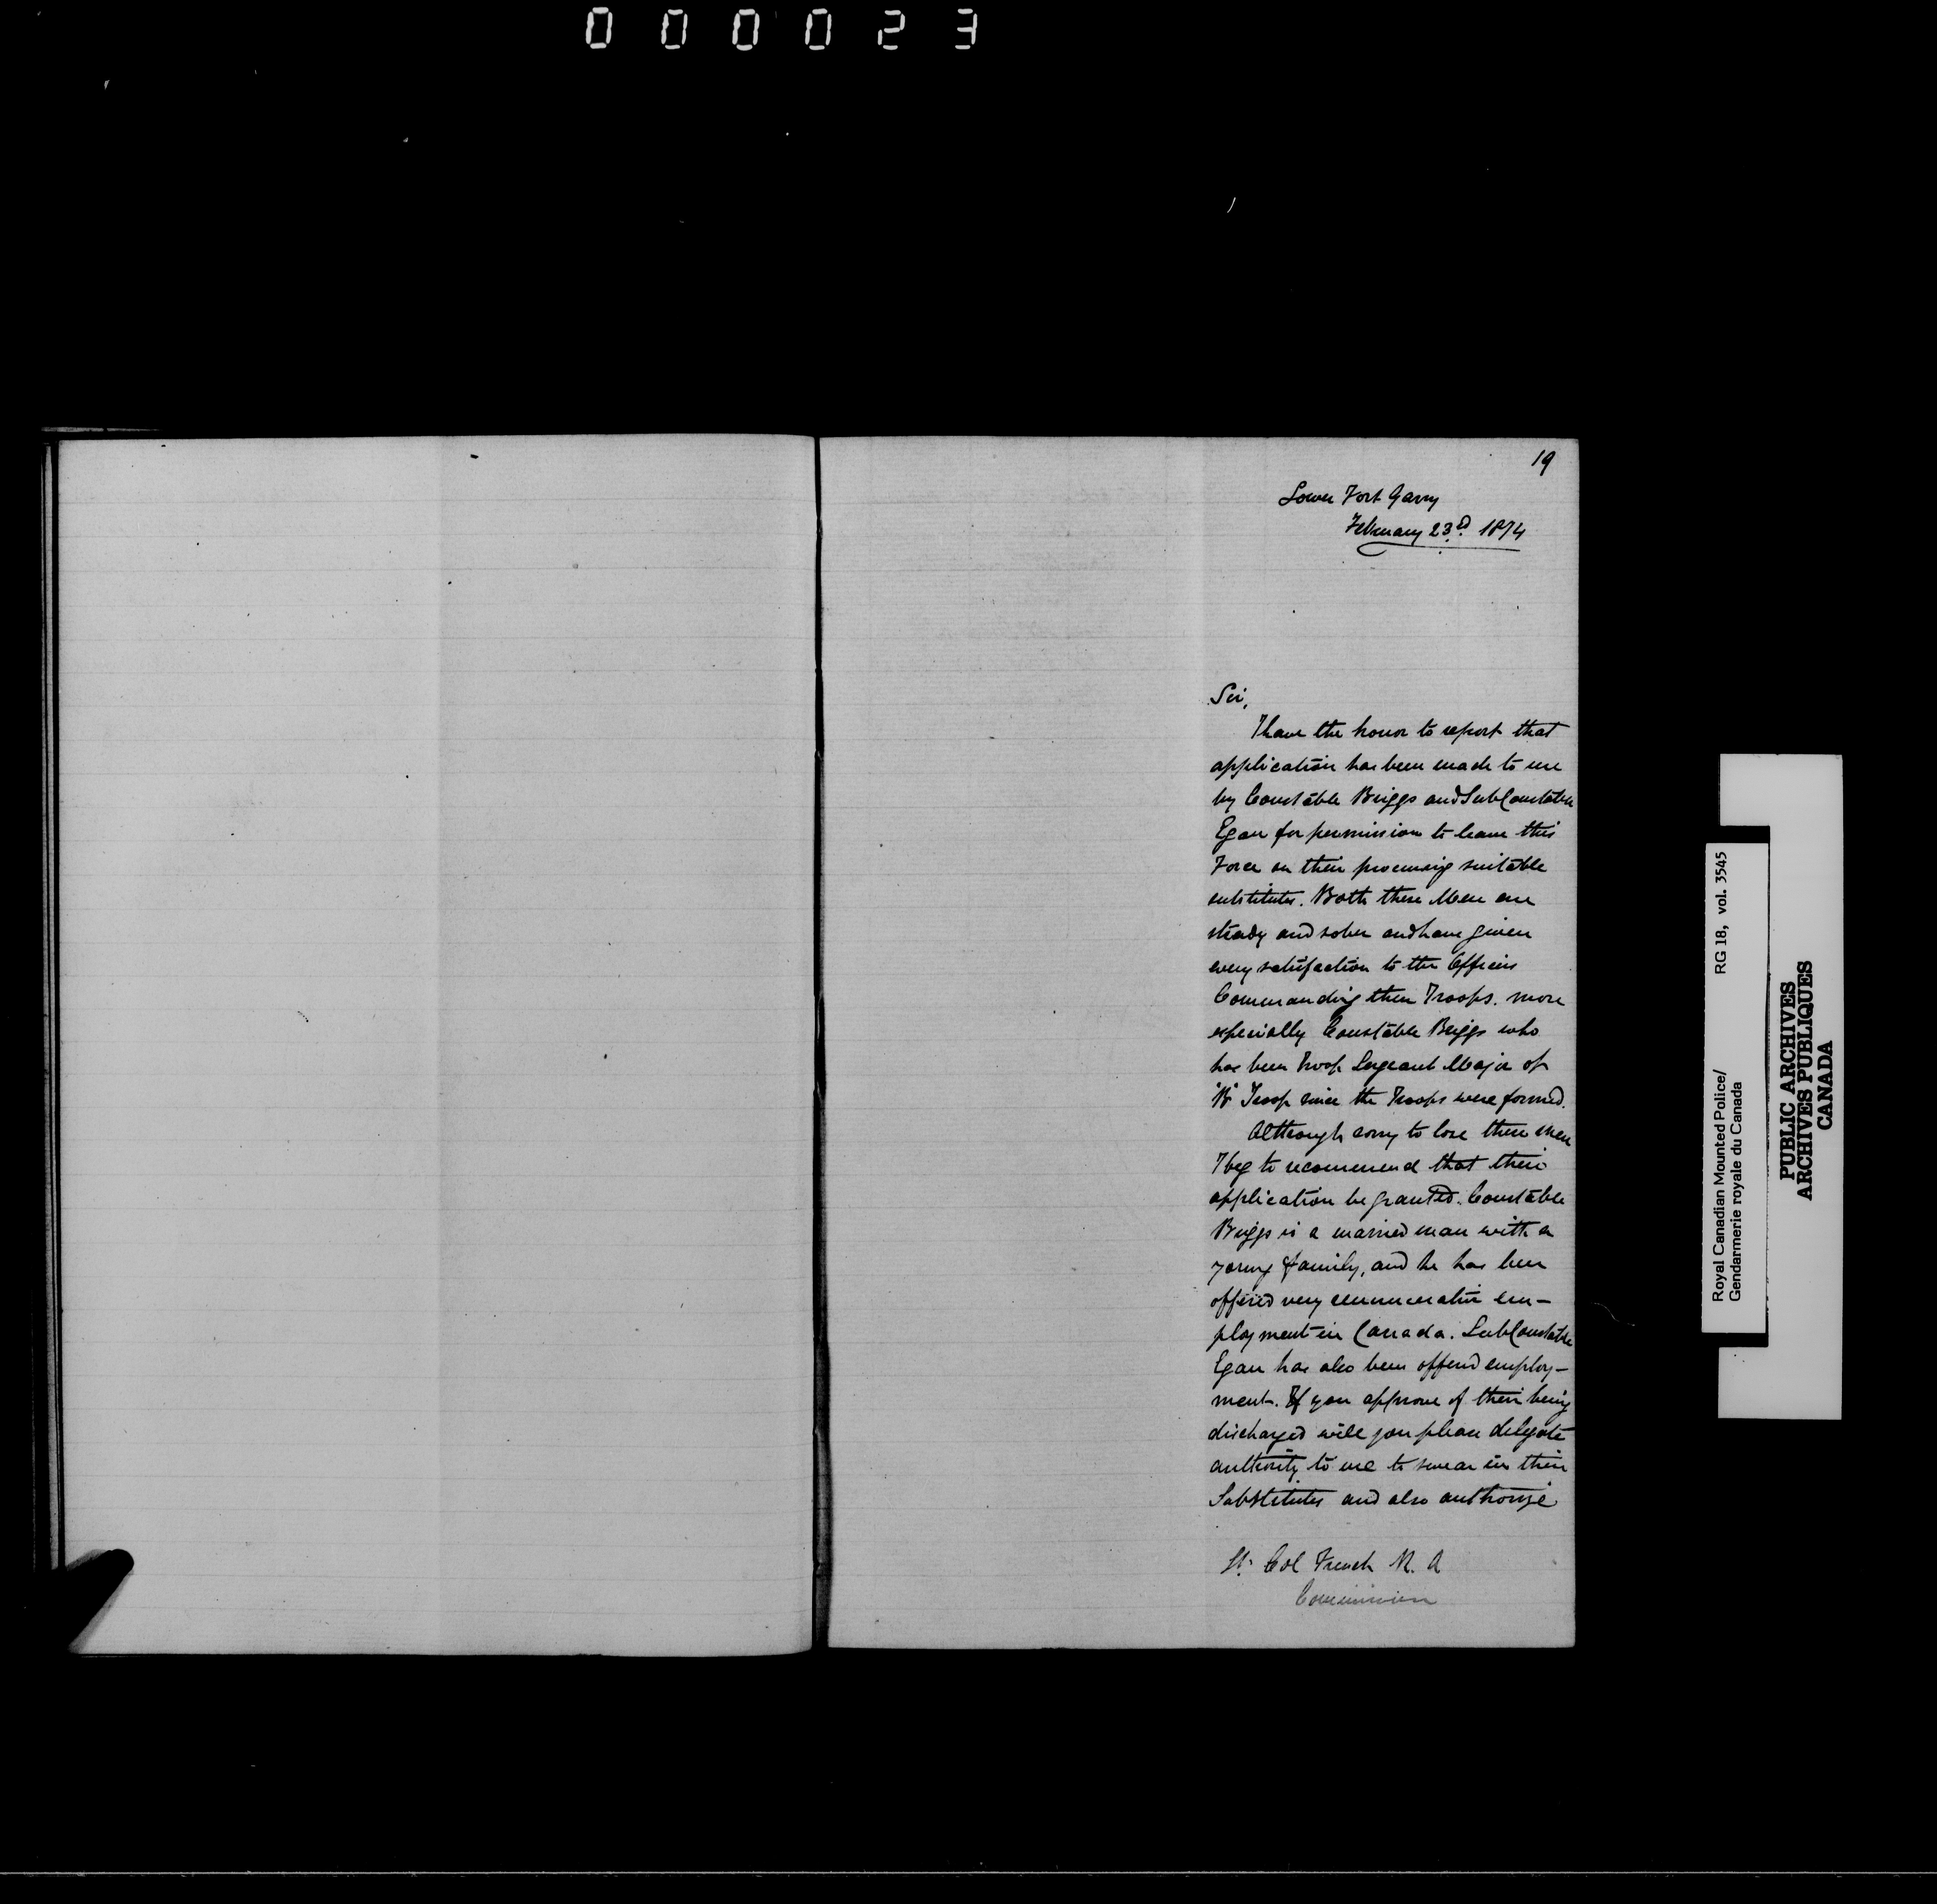 000023
19
Lower Fort Garry
February 23rd. 1874
Sir,
I have the honor to report that
application has been made to me
by Constable Briggs and Sub Constable
Egan for permission to leave this
Force on their procuring suitable
substitutes. Both these Men are
steady and sober and have given
every satisfaction to the Officers
Commanding their Troops. more
especially Constable Briggs who
has been Troop Sergeant Major of
"B" Troop since the Troops were formed.
Although sorry to lose these men
I beg to recommend that their
application be granted. Constable
Briggs is a married man with a
young family, and he has been
offered very remunerative em-
ployment in Canada. Sub Constable
Egan has also been offered employ-
ment. If you approve of their being
discharged will you please delegate
authority to me to swear in their
Substitutes and also authorize
Lt. Col French R. A
Commissioner
Royal Canadian Mounted Police/ RG 18, vol. 3545
Gendarmerie royale du Canada
PUBLIC ARCHIVES
ARCHIVES PUBLIQUES
CANADA